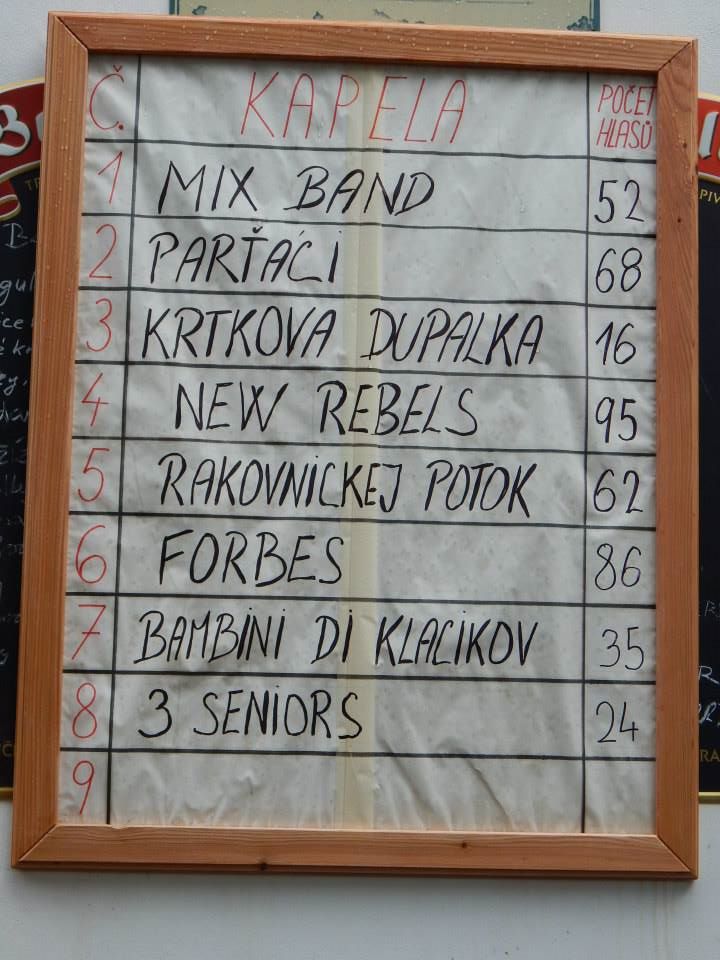 Č. KAPELA POČET HLASŮ
1 MIX BAND 52
2 PARŤÁCI 68
3 KRTKOVA DUPALKA 16
4 NEW REBELS 95
5 RAKOVNICKEJ POTOK 62
6 FORBES 86
7 BAMBINI DI KLACIKOV 35
8 3 SENIORS 24
9